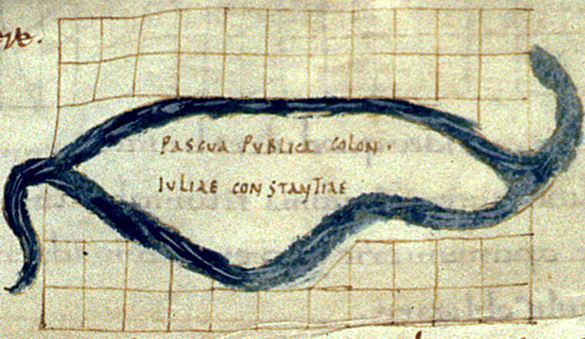 PASCUA PUBLICA COLON.
IULIAE CONSTANTIAE